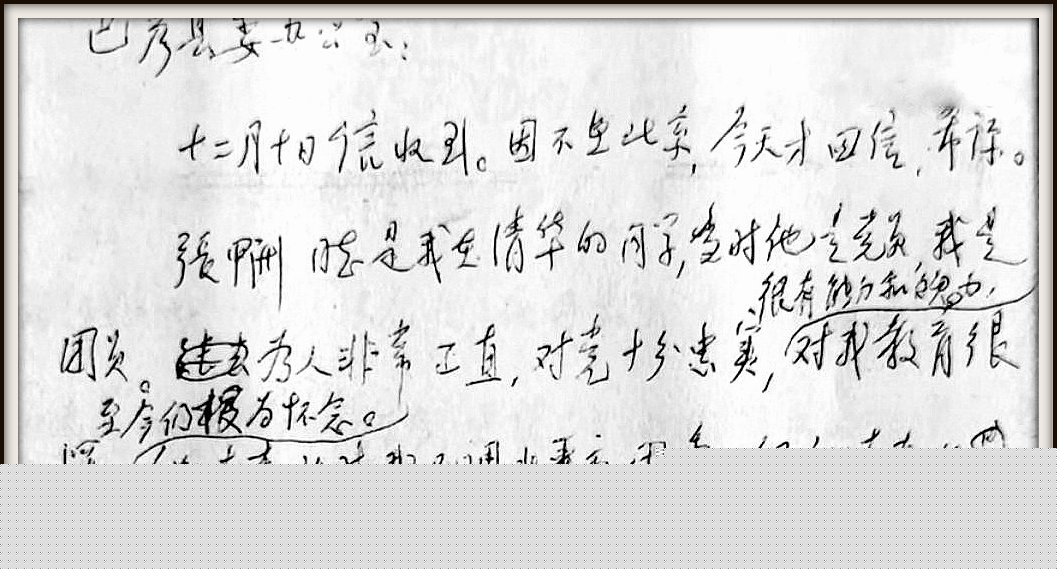 巴彦县委办公室：
十二月十日信收到。因不在北京，今天才回信，希谅。
張甲洲 同志是我在清华的同学，当时他是党员，我是
很有能力和魄力，
团员。为人非常正直，对党十分忠实，对我教育很
至今仍极为怀念。
深